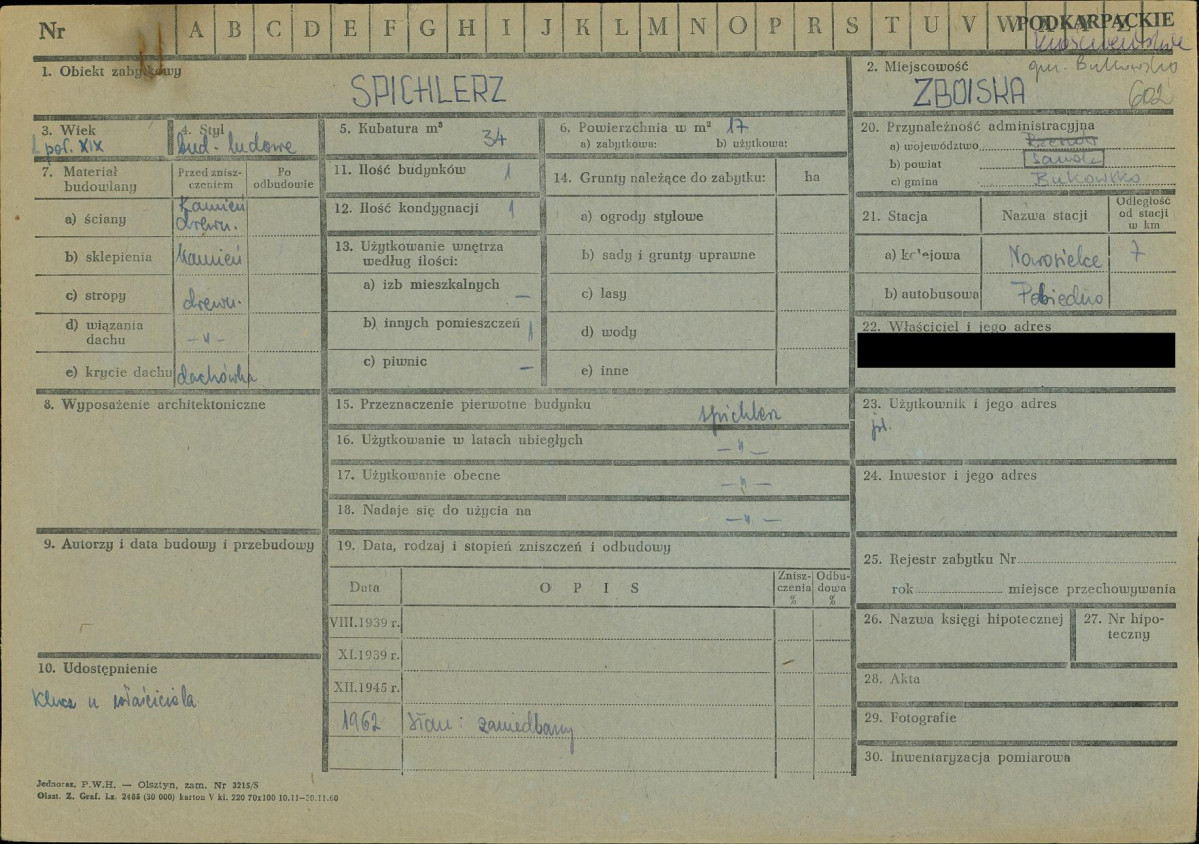 Nr A B C D E F G H I J K L M N O P R S T U V W PODKARPACKIE
gm. Bukowsko
1. Obiekt zabytkowy
SPICHLERZ
2. Miejscowość
ZBOISKA
602
3. Wiek
I poł. XIX
4. Styl
bud. ludowe
5. Kubatura m³
34
6. Powierzchnia w m² 17
a) zabytkowa: b) użytkowa:
7. Materiał budowlany
Przed zniszczeniem
Po odbudowie
a) ściany
kamień
drewn.
b) sklepienia
kamień
c) stropy
drewn.
d) wiązania dachu
-„-
e) krycie dachu
dachówka
8. Wyposażenie architektoniczne
9. Autorzy i data budowy i przebudowy
10. Udostępnienie
Klucz u właściciela
11. Ilość budynków 1
12. Ilość kondygnacji 1
13. Użytkowanie wnętrza
według ilości:
a) izb mieszkalnych —
b) innych pomieszczeń 1
c) piwnic —
14. Grunty należące do zabytku: ha
a) ogrody stylowe
b) sady i grunty uprawne
c) lasy
d) wody
e) inne
15. Przeznaczenie pierwotne budynku
spichlerz
16. Użytkowanie w latach ubiegłych
-„-
17. Użytkowanie obecne
-„-
18. Nadaje się do użycia na
-„-
19. Data, rodzaj i stopień zniszczeń i odbudowy
Data
O P I S
Zniszczenia %
Odbudowa %
VIII.1939 r.
XI.1939 r.
XII.1945 r.
1962 Stan: zaniedbany
20. Przynależność administracyjna
a) województwo Rzeszów
b) powiat Sanok
c) gmina Bukowsko
21. Stacja
Nazwa stacji
Odległość
od stacji
w km
a) kolejowa Nowosielce 7
b) autobusowa Pobiedno
22. Właściciel i jego adres
23. Użytkownik i jego adres
24. Inwestor i jego adres
25. Rejestr zabytku Nr
rok miejsce przechowywania
26. Nazwa księgi hipotecznej
27. Nr hipoteczny
28. Akta
29. Fotografie
30. Inwentaryzacja pomiarowa
Jednoraz. P.W.H. — Olsztyn, zam. Nr 3215/S
Olszt. Z. Graf. Lz. 2465 (30 000) karton V kl. 220 70x100 10.11—30.11.60